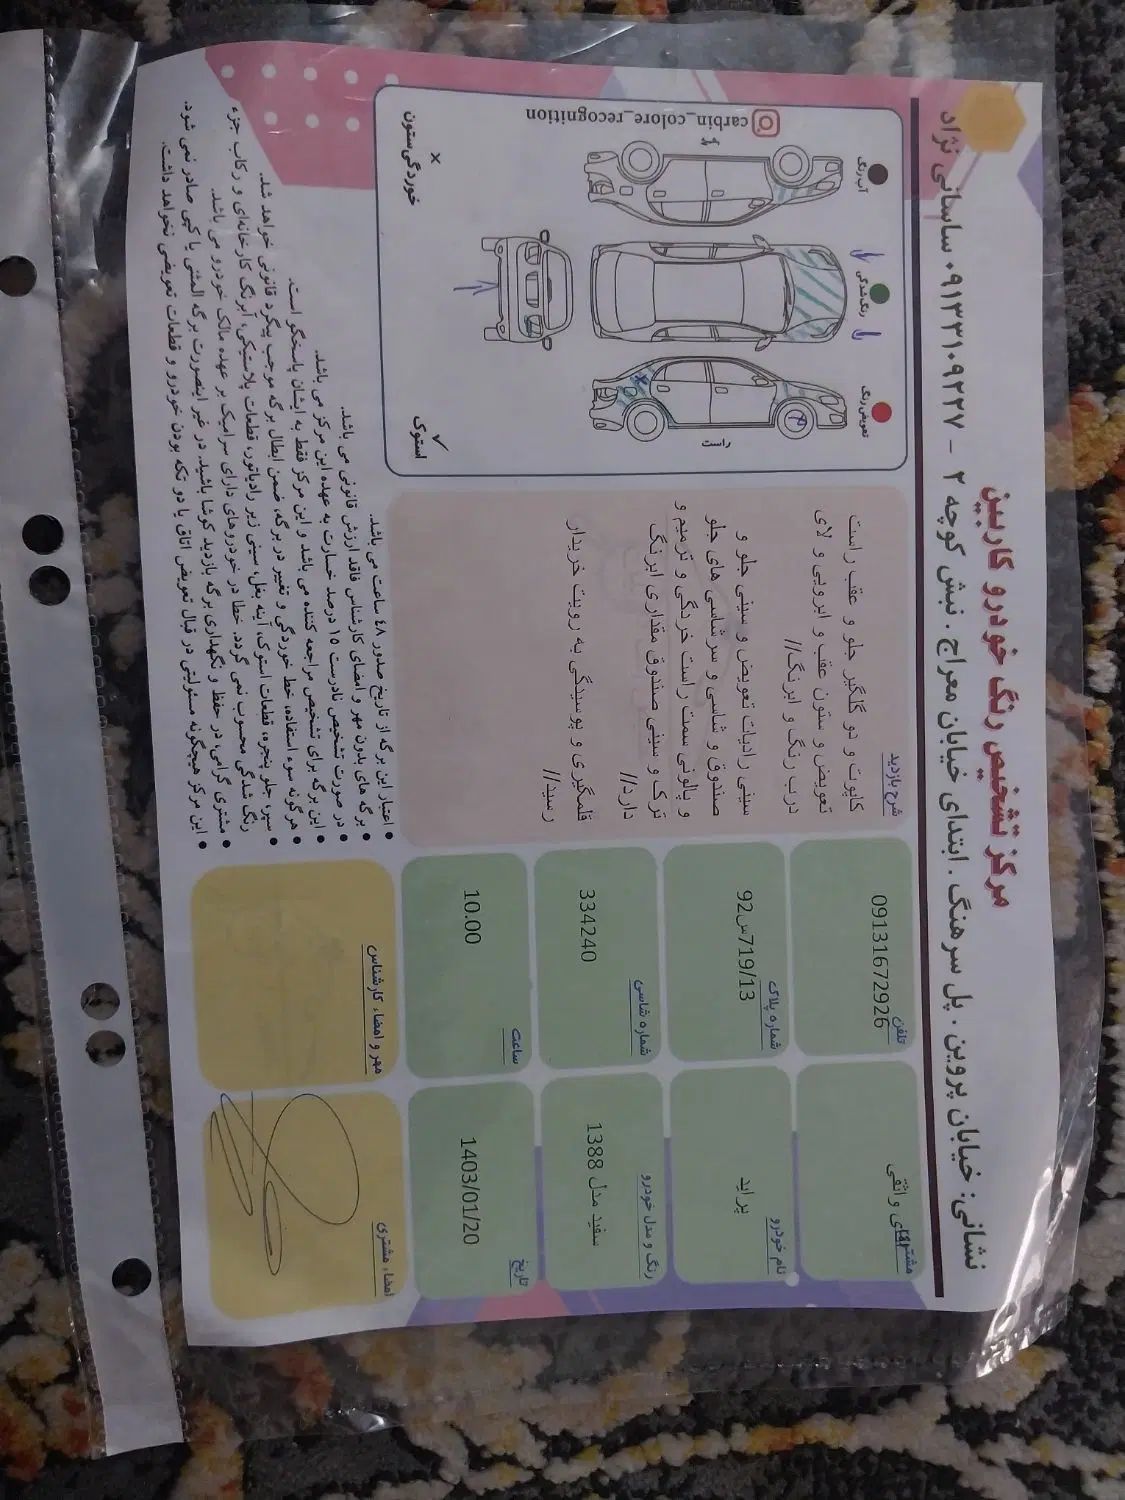 مرکز تشخیص رنگ خودرو کاربین
نشانی: خیابان پروین . پل سرهنگ . ابتدای خیابان معراج . نبش کوچه ۲ – ۰۹۱۳۳۱۰۹۲۲۷ ساسانی نژاد
مشتری
آقای واثقی
تلفن
09131672926
نام خودرو
پراید
شماره پلاک
719/13س92
رنگ و مدل خودرو
سفید مدل 1388
شماره شاسی
334240
تاریخ
1403/01/20
ساعت
10.00
امضاء مشتری
مهر و امضاء کارشناس
شرح بازدید
کاپوت و دو گلگیر جلو و عقب راست
تعویض و ستون عقب و ابرویی و لای
درب رنگ و ابرنگ//
سینی رادیات تعویض و سینی جلو و
صندوق و شاسی و سر شاسی های جلو
و پالونی سمت راست خردگی و ترمیم و
ترک و سینی صندوق مقداری ابرنگ
دارد//
قلمگیری و پوسیدگی به رویت خریدار
رسید//
تعویض رنگ
رنگ شدگی
آب رنگ
راست
چپ
carbin_colore_recognition
استوک ✓
خوردگی ستون ×
• اعتبار این برگه از تاریخ صدور ۴۸ ساعت می باشد.
• برگه های بدون مهر و امضای کارشناس فاقد ارزش قانونی می باشد.
• در صورت تشخیص نادرست ۱۵ درصد خسارت به عهده این مرکز می باشد.
• این برگه برای تشخیص مراجعه کننده می باشد و این مرکز فقط به ایشان پاسخگو است.
• هرگونه سوء استفاده، خط خوردگی و تغییر در برگه، ضمن ابطال برگه موجب پیگرد قانونی خواهد شد.
• سپر، جلو پنجره، قطعات استوک، آینه بغل، سینی زیر رادیاتور، قطعات پلاستیکی، ابرنگ کارخانه‌ای و رکاب جزء
رنگ شدگی محسوب نمی گردد. خطا در خودروهای دارای سرامیک بر عهده مالک خودرو می باشد.
• مشتری گرامی، در حفظ و نگهداری برگه بازدید کوشا باشید. در غیر اینصورت برگه المثنی یا کپی صادر نمی شود.
• این مرکز هیچگونه مسئولیتی در قبال تعویض اتاق یا دو تکه بودن خودرو و قطعات تعویضی نخواهد داشت.